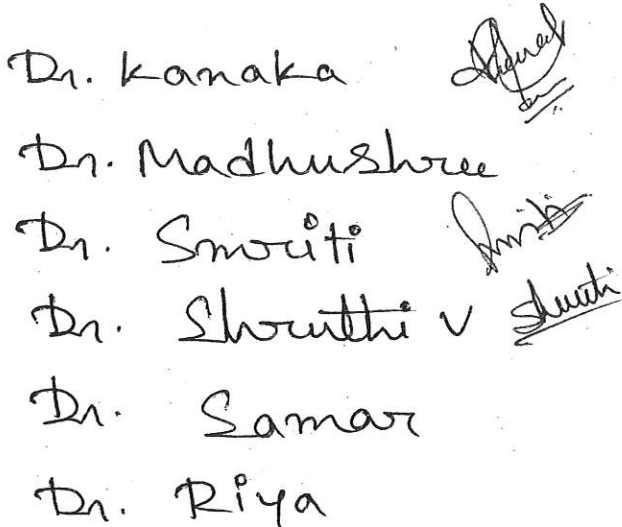 Dr. Kanaka
Dr. Madhushree
Dr. Smriti Smriti
Dr. Shruthi V Shruthi
Dr. Samar
Dr. Riya